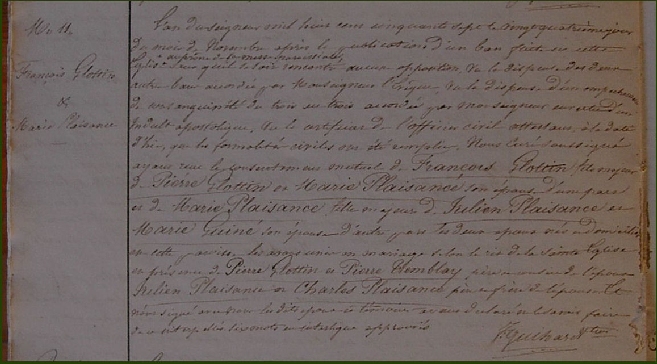 No 11.
François Glottin
&
Marie Plaisance
L'an du seigneur mil huit cent cinquante sept le vingt quatrième jour
du mois de Novembre après la publication d'un ban faite en cette
sans qu'il se soit rencontré aucun opposition, vu la dispense des deux
autres bans accordée par Monseigneur l'Evêque, vu la dispense d'un empêchement
de consanguinité du trois au trois accordée par monseigneur en vertu d'un
Indult apostolique, vu le certificat de l'officier civil attestant, à la date
d'hier, que les formalités civiles ont été remplies, Nous Curé soussigné
ayant reçu le consentement mutuel de François Glottin fils majeur
de Pierre Glottin et Marie Plaisance son épouse d'une part
et de Marie Plaisance fille majeure de Julien Plaisance et
Marie son épouse d'autre part les deux époux nés et domiciliés
en cette paroisse les avons unis en mariage selon le rit de la Sainte Eglise
en présence de Pierre Glottin et Pierre père de l'époux
Julien Plaisance et Charles Plaisance père et frère de l'épouse
les dits époux et témoins ayant déclaré ne savoir faire
les mots en interligne approuvés
Guihard